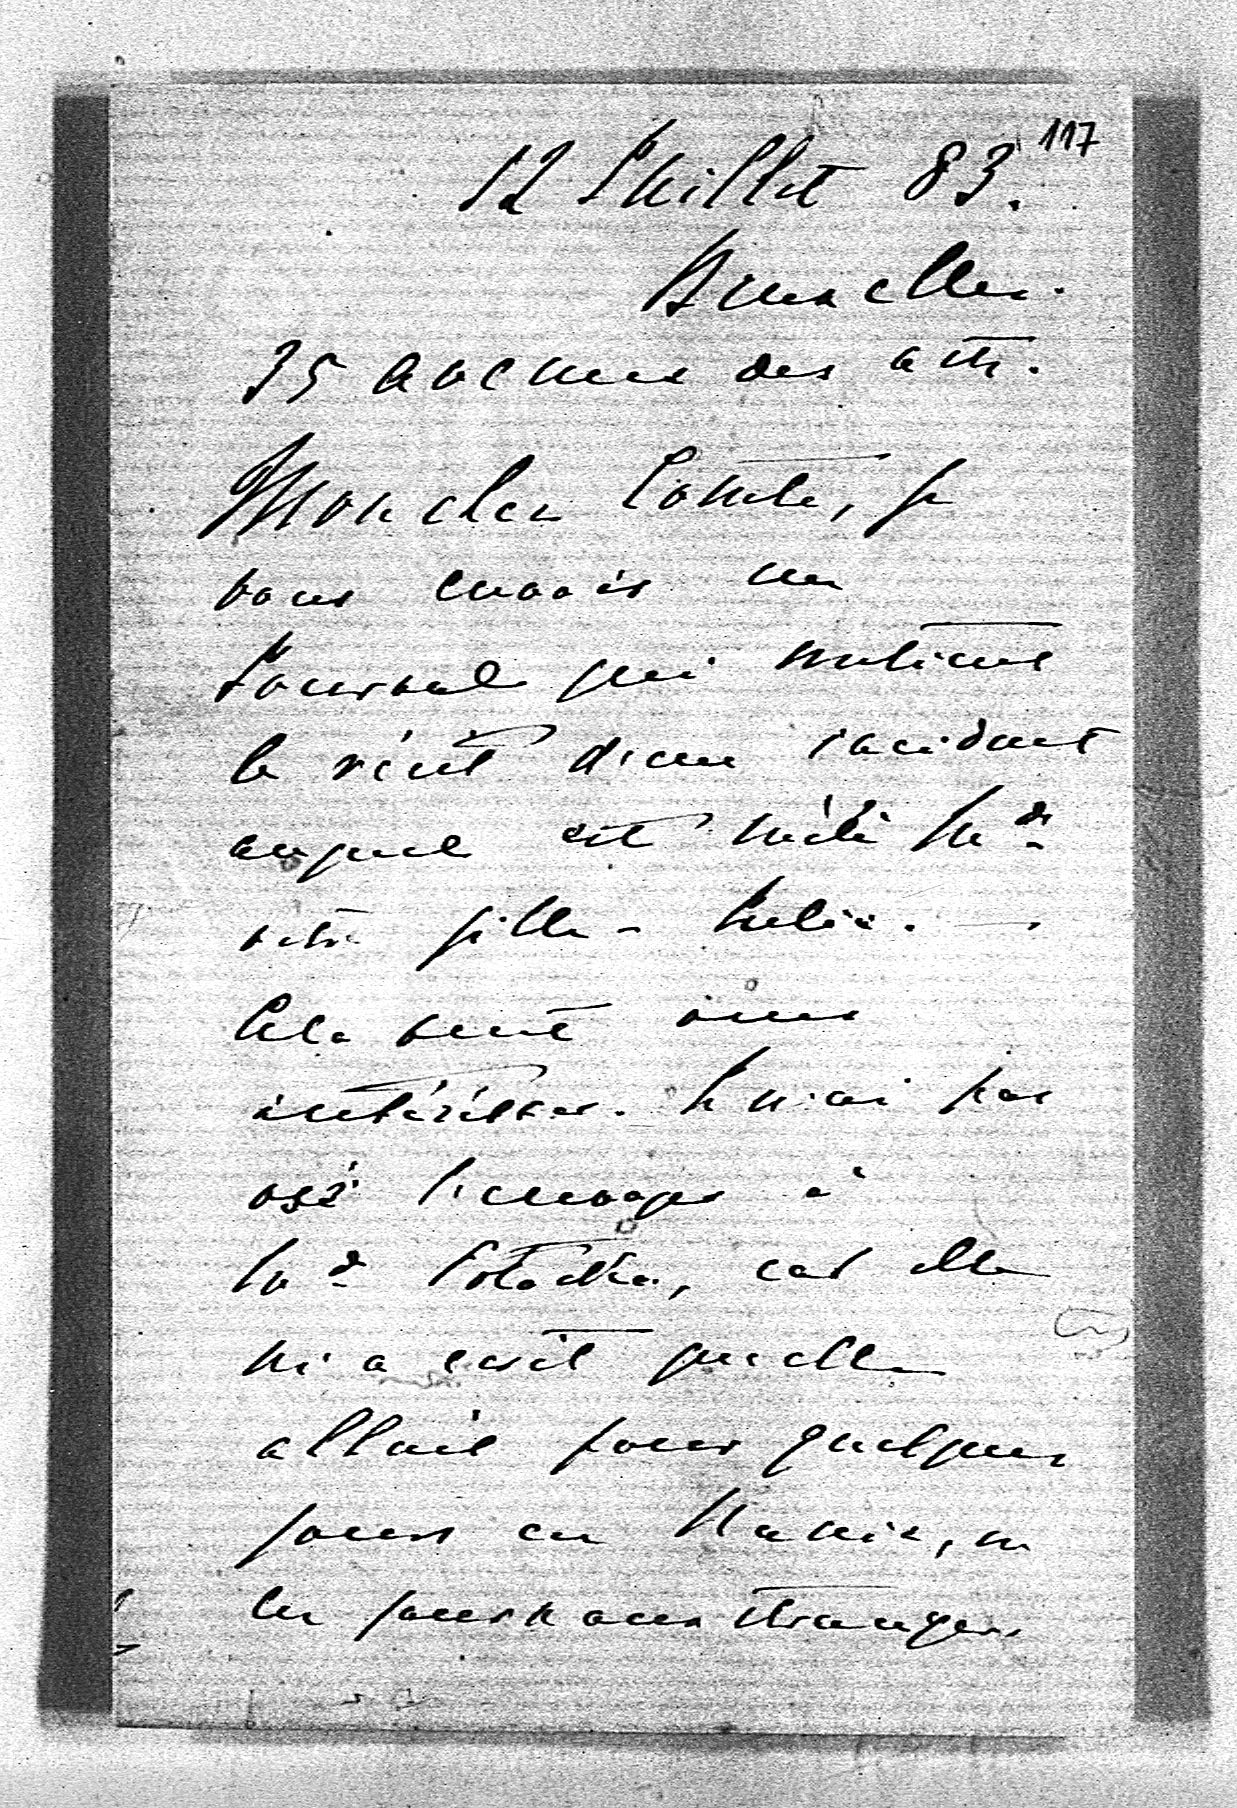 117
12 Juillet 83.
Bruxelles.
35 avenue des arts.
Mon cher Comte, je
vous envois un
Journal qui contient
le récit d'un incident
auquel est mêlé M^de
votre fille - Julie. -
Cela peut vous
intéresser. Je n'ai pas
osé l'envoyer à
la Potocka, car elle
m'a écrit qu'elle
allait pour quelques
jours en Russie, où
les journaux étrangers